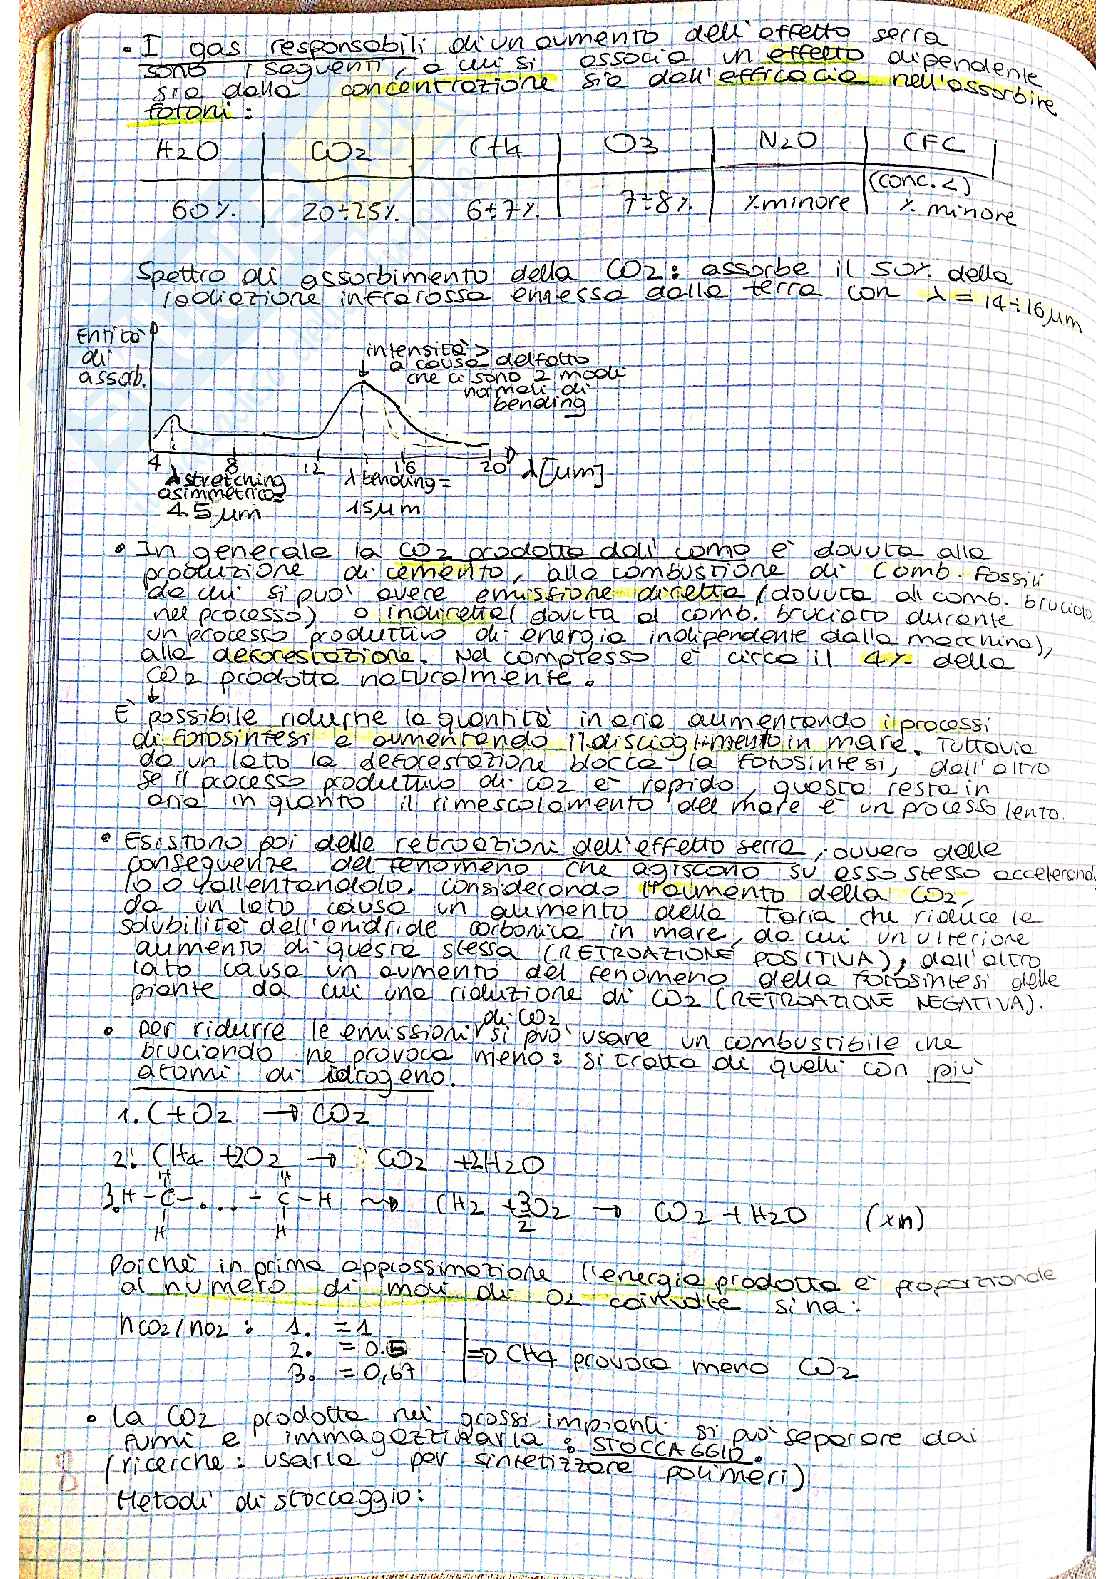 • I gas responsabili di un aumento dell'effetto serra
sono i seguenti, a cui si associa un effetto dipendente
sia dalla concentrazione sia dall'efficacia nell'assorbire
fotoni:
H2O | CO2 | CH4 | O3 | N2O | CFC
(conc. <)
60% | 20÷25% | 6÷7% | 7÷8% | % minore | % minore
Spettro di assorbimento della CO2: assorbe il 50% della
radiazione infrarossa emessa dalla terra con λ = 14÷16 μm
Entità
di
assorb.
intensità >
a causa del fatto
che ci sono 2 modi
normali di
bending
4 8 12 16 20 λ[μm]
λ stretching
asimmetrico =
4.5 μm
λ bending =
15 μm
• In generale la CO2 prodotta dall'uomo è dovuta alla
produzione di cemento, alla combustione di comb. fossili
da cui si può avere emissione diretta (dovuta al comb. bruciato
nel processo) o indiretta (dovuta al comb. bruciato durante
un processo produttivo di energia indipendente dalla macchina),
alla deforestazione. Nel complesso è circa il 4% della
CO2 prodotta naturalmente.
↓
È possibile ridurne la quantità in aria aumentando i processi
di fotosintesi e aumentando il discioglimento in mare. Tuttavia
da un lato la deforestazione blocca la fotosintesi, dall'altro
se il processo produttivo di CO2 è rapido, questa resta in
aria in quanto il rimescolamento del mare è un processo lento.
• Esistono poi delle retroazioni dell'effetto serra, ovvero delle
conseguenze del fenomeno che agiscono su esso stesso accelerando
lo o rallentandolo. Considerando l'aumento della CO2,
da un lato causa un aumento della Taria che riduce la
solubilità dell'anidride carbonica in mare, da cui un ulteriore
aumento di questa stessa (RETROAZIONE POSITIVA), dall'altro
lato causa un aumento del fenomeno della fotosintesi delle
piante da cui una riduzione di CO2 (RETROAZIONE NEGATIVA).
• per ridurre le emissioni di CO2 si può usare un combustibile che
bruciando ne provoca meno: si tratta di quelli con più
atomi di idrogeno.
1. C+O2 → CO2
2. CH4 +2O2 → CO2 +2H2O
3. H-C-...-C-H ⇝ CH2 + 3/2 O2 → CO2 + H2O (xn)
H H
H H
Poiché in prima approssimazione l'energia prodotta è proporzionale
al numero di moli di O2 coinvolte si ha:
nCO2/nO2 : 1. = 1
2. = 0.5
3. = 0,67
⇒ CH4 provoca meno CO2
• La CO2 prodotta nei grossi impianti si può separare dai
fumi e immagazzinarla: STOCCAGGIO.
(ricerche: usarla per sintetizzare polimeri)
Metodi di stoccaggio: